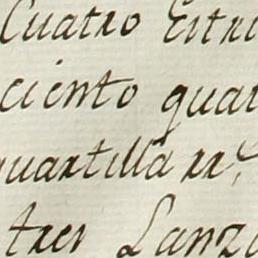 Cuatro Estri
ciento quar
quartilla rr.^
tres Lanza